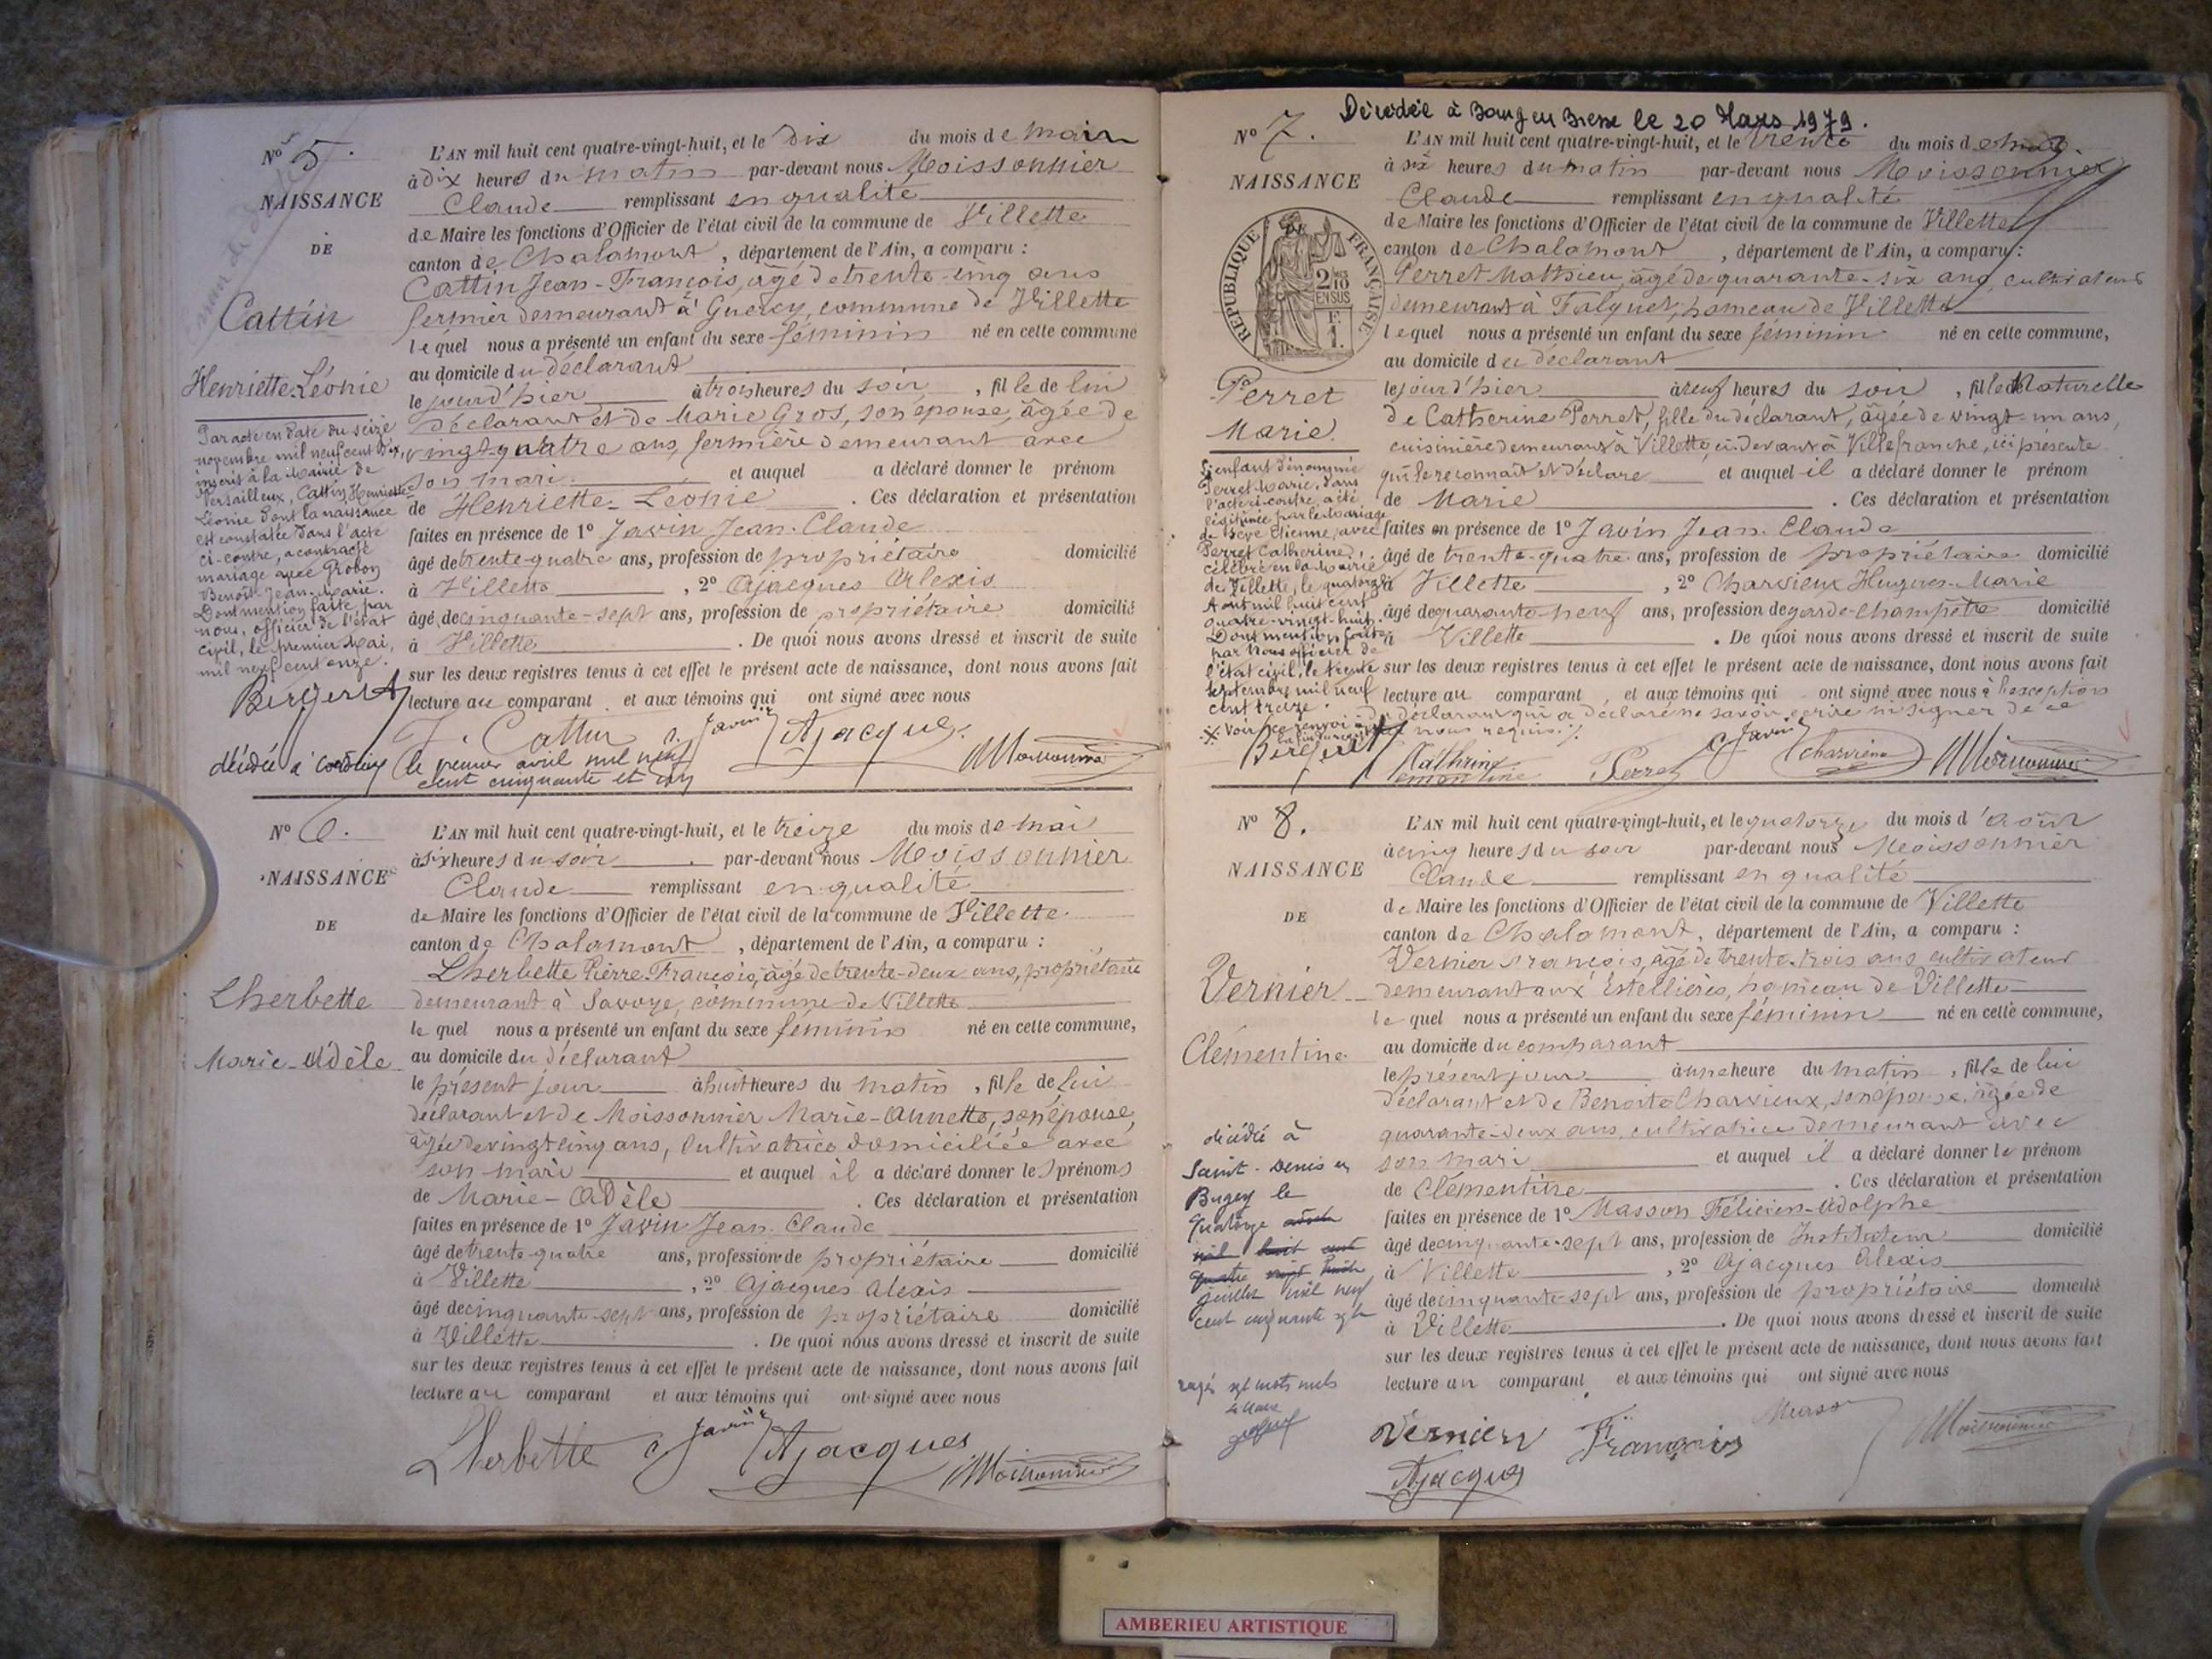 N° 5.
NAISSANCE
DE
Cattin
Henriette-Léonie
Par acte en date du seize
novembre mil neuf cent dix,
inscrit à la Mairie de
Versailleux, Cattin Henriette
Léonie dont la naissance
est constatée dans l'acte
ci-contre, a contracté
mariage avec Grobon
Benoit-Jean-Marie.
Dont mention faite par
nous, officier de l'état
civil, le premier Mai,
mil neuf cent onze.
décédée à le premier avril mil neuf
cent cinquante et un
L'AN mil huit cent quatre-vingt-huit, et le Dix du mois de mai
à dix heures du matin par-devant nous Moissonnier
Claude remplissant en qualité
de Maire les fonctions d'Officier de l'état civil de la commune de Villette
canton de Chalamont, département de l'Ain, a comparu :
Cattin Jean-François, âgé de trente-cinq ans
fermier demeurant à Guercy, commune de Villette
lequel nous a présenté un enfant du sexe féminin né en cette commune
au domicile du déclarant
le jour d'hier à trois heures du soir, fille de lui
déclarant et de Marie Gros, son épouse, âgée de
vingt-quatre ans, fermière demeurant avec
son mari et auquel a déclaré donner le prénom
de Henriette-Léonie. Ces déclaration et présentation
faites en présence de 1° Javin Jean-Claude
âgé de trente-quatre ans, profession de propriétaire domicilié
à Villette, 2° Ajacques Alexis
âgé de cinquante-sept ans, profession de propriétaire domicilié
à Villette. De quoi nous avons dressé et inscrit de suite
sur les deux registres tenus à cet effet le présent acte de naissance, dont nous avons fait
lecture au comparant et aux témoins qui ont signé avec nous
J. Cattin Javin Ajacques Moissonnier
N° 6.
NAISSANCE
DE
Lherbette
Marie-Adèle
L'AN mil huit cent quatre-vingt-huit, et le treize du mois de mai
à six heures du soir par-devant nous Moissonnier
Claude remplissant en qualité
de Maire les fonctions d'Officier de l'état civil de la commune de Villette
canton de Chalamont, département de l'Ain, a comparu :
Lherbette Pierre-François, âgé de trente-deux ans, propriétaire
demeurant à Savoye, commune de Villette
lequel nous a présenté un enfant du sexe féminin né en cette commune,
au domicile du déclarant
le présent jour à huit heures du matin, fille de lui
déclarant et de Moissonnier Marie-Annette, son épouse,
âgée de vingt cinq ans, cultivatrice domiciliée avec
son mari et auquel il a déclaré donner les prénoms
de Marie-Adèle. Ces déclaration et présentation
faites en présence de 1° Javin Jean-Claude
âgé de trente-quatre ans, profession de propriétaire domicilié
à Villette, 2° Ajacques Alexis
âgé de cinquante-sept ans, profession de propriétaire domicilié
à Villette. De quoi nous avons dressé et inscrit de suite
sur les deux registres tenus à cet effet le présent acte de naissance, dont nous avons fait
lecture au comparant et aux témoins qui ont signé avec nous
Lherbette Javin Ajacques Moissonnier
Décédée à Bourg en Bresse le 20 Mars 1979.
N° 7.
NAISSANCE
RÉPUBLIQUE FRANÇAISE
2/10
EN SUS
Perret
Marie
L'enfant dénommée
Perret Marie, dans
l'acte ci-contre, a été
légitimée par le Mariage
de Sève Etienne, avec
Perret Catherine,
célébré en la Mairie
de Villette, le quatorze
Août mil huit cent
quatre-vingt-huit.
Dont mention faite
par Nous officier de
l'état civil, le trente
septembre mil neuf
cent treize.
L'AN mil huit cent quatre-vingt-huit, et le trente du mois de mai
à six heures du matin par-devant nous Moissonnier
Claude remplissant en qualité
de Maire les fonctions d'Officier de l'état civil de la commune de Villette
canton de Chalamont, département de l'Ain, a comparu :
Perret Mathieu, âgé de quarante-six ans, cultivateur
demeurant à Falquet, hameau de Villette
lequel nous a présenté un enfant du sexe féminin né en cette commune,
au domicile du déclarant
le jour d'hier à neuf heures du soir, fille Naturelle
de Catherine Perret, fille du déclarant, âgée de vingt-un ans,
cuisinière demeurant à Villette ci-devant à Villefranche, ici présente
qui le reconnaît et déclare et auquel il a déclaré donner le prénom
de Marie. Ces déclaration et présentation
faites en présence de 1° Javin Jean-Claude
âgé de trente-quatre ans, profession de propriétaire domicilié
à Villette, 2° Charvieux Hugues-Marie
âgé de quarante-neuf ans, profession de garde-champêtre domicilié
à Villette. De quoi nous avons dressé et inscrit de suite
sur les deux registres tenus à cet effet le présent acte de naissance, dont nous avons fait
lecture au comparant, et aux témoins qui ont signé avec nous à l'exception
du déclarant qui a déclaré ne savoir écrire ni signer de ce
nous requis.
Perret Javin Charvieux Moissonnier
N° 8.
NAISSANCE
DE
Vernier
Clémentine
décédée à
Saint-Denis en
Bugey le
quatorze août
mil huit cent
quatre vingt huit
juillet mil neuf
cent cinquante sept
rayés sept mots nuls
Le Maire
L'AN mil huit cent quatre-vingt-huit, et le quatorze du mois d'août
à cinq heures du soir par-devant nous Moissonnier
Claude remplissant en qualité
de Maire les fonctions d'Officier de l'état civil de la commune de Villette
canton de Chalamont, département de l'Ain, a comparu :
Vernier François, âgé de trente-trois ans cultivateur
demeurant aux Estellières, hameau de Villette
lequel nous a présenté un enfant du sexe féminin né en cette commune,
au domicile du comparant
le présent jour à une heure du matin, fille de lui
déclarant et de Benoite Charvieux, son épouse, âgée de
quarante-deux ans, cultivatrice demeurant avec
son mari et auquel il a déclaré donner le prénom
de Clémentine. Ces déclaration et présentation
faites en présence de 1° Masson Félicien-Adolphe
âgé de cinquante-sept ans, profession de Instituteur domicilié
à Villette, 2° Ajacques Alexis
âgé de cinquante-sept ans, profession de propriétaire domicilié
à Villette. De quoi nous avons dressé et inscrit de suite
sur les deux registres tenus à cet effet le présent acte de naissance, dont nous avons fait
lecture au comparant et aux témoins qui ont signé avec nous
Vernier François Masson Moissonnier
Ajacques
AMBERIEU ARTISTIQUE